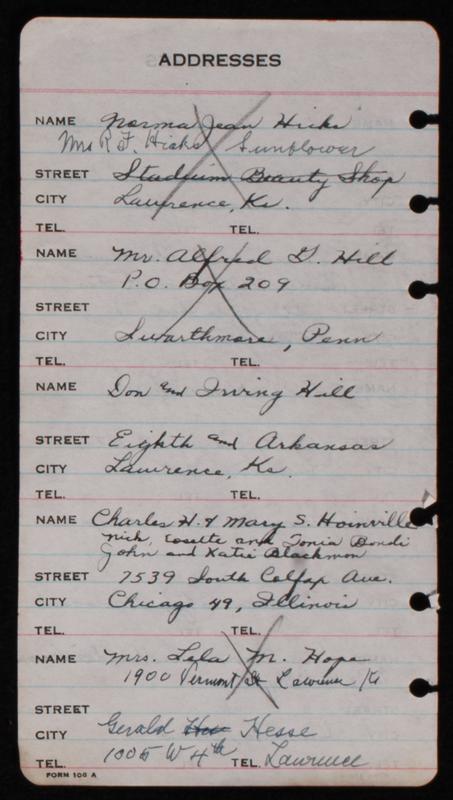 ADDRESSES
NAME Norma Jean Hicks
Mrs R. F. Hicks Sunflower
STREET Stadium Beauty Shop
CITY Lawrence, Ks.
TEL. TEL.
NAME Mr. Alfred G. Hill
P.O. Box 209
STREET
CITY Swarthmore, Penn
TEL. TEL.
NAME Don and Irving Hill
STREET Eighth and Arkansas
CITY Lawrence, Ks.
TEL. TEL.
NAME Charles H. & Mary S. Hoinville
Nick, Cosette and Tonia Bondi
John and Katie Blackmon
STREET 7539 South Colfax Ave.
CITY Chicago 49, Illinois
TEL. TEL.
NAME Mrs. Lela M. Hope
1900 Vermont St Lawrence Ks
STREET
CITY Gerald Hesse
TEL. 1005 W 4th TEL. Lawrence
FORM 106 A